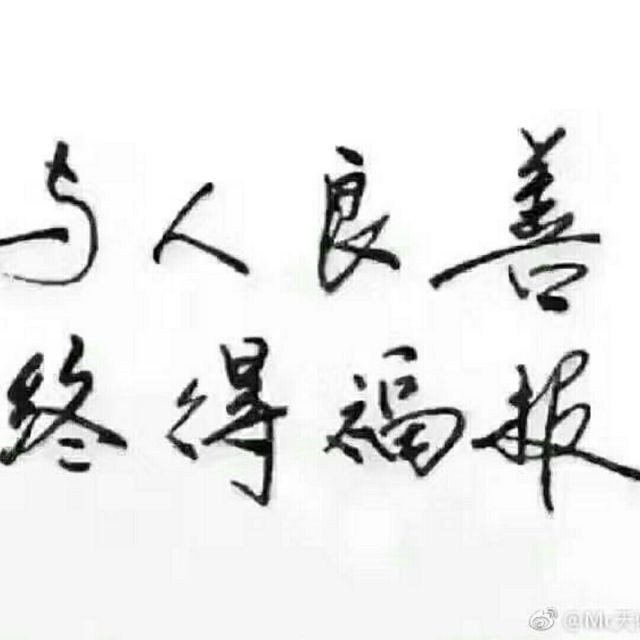 与人良善
终得福报
@Mc天